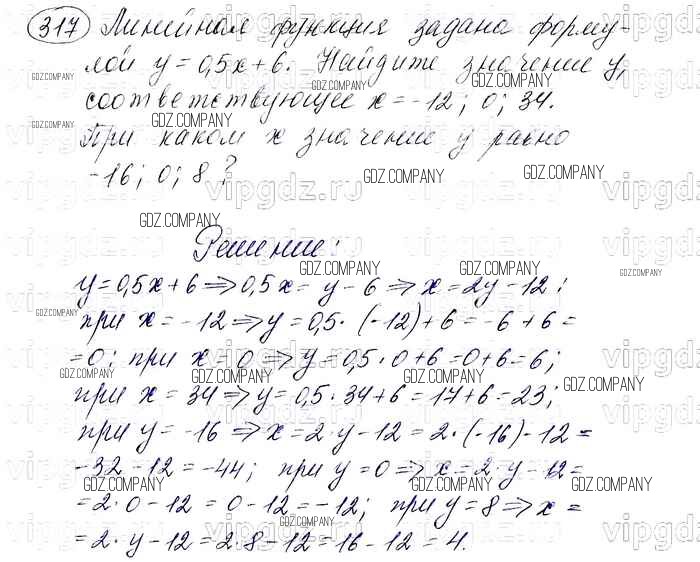 317 Линейная функция задана форму-
лой y = 0,5x + 6. Найдите значение y,
соответствующее x = -12; 0; 34.
При каком x значение y равно
-16; 0; 8?
Решение:
y = 0,5x + 6 ⇒ 0,5x = y - 6 ⇒ x = 2y - 12;
при x = -12 ⇒ y = 0,5 · (-12) + 6 = -6 + 6 =
= 0; при x = 0 ⇒ y = 0,5 · 0 + 6 = 0 + 6 = 6;
при x = 34 ⇒ y = 0,5 · 34 + 6 = 17 + 6 = 23;
при y = -16 ⇒ x = 2 · y - 12 = 2 · (-16) - 12 =
-32 - 12 = -44; при y = 0 ⇒ x = 2 · y - 12 =
= 2 · 0 - 12 = 0 - 12 = -12; при y = 8 ⇒ x =
= 2 · y - 12 = 2 · 8 - 12 = 16 - 12 = 4.